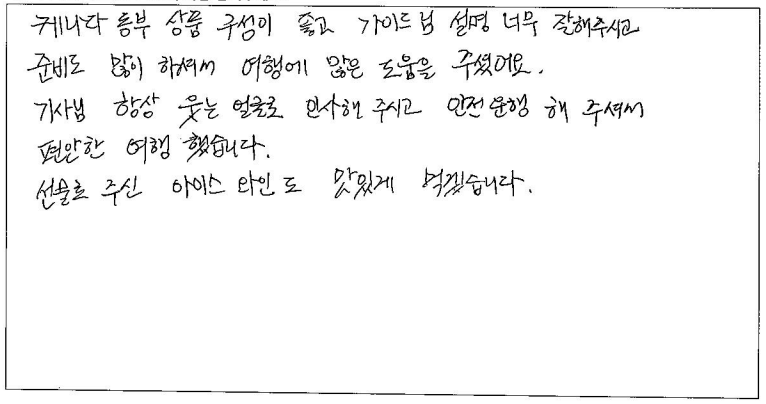 캐나다 동부 상품 구성이 좋고 가이드님 설명 너무 잘해주시고
준비도 많이 하셔서 여행에 많은 도움을 주셨어요.
기사님 항상 웃는 얼굴로 인사해 주시고 안전운행 해 주셔서
편안한 여행 했습니다.
선물로 주신 아이스 와인도 맛있게 먹겠습니다.